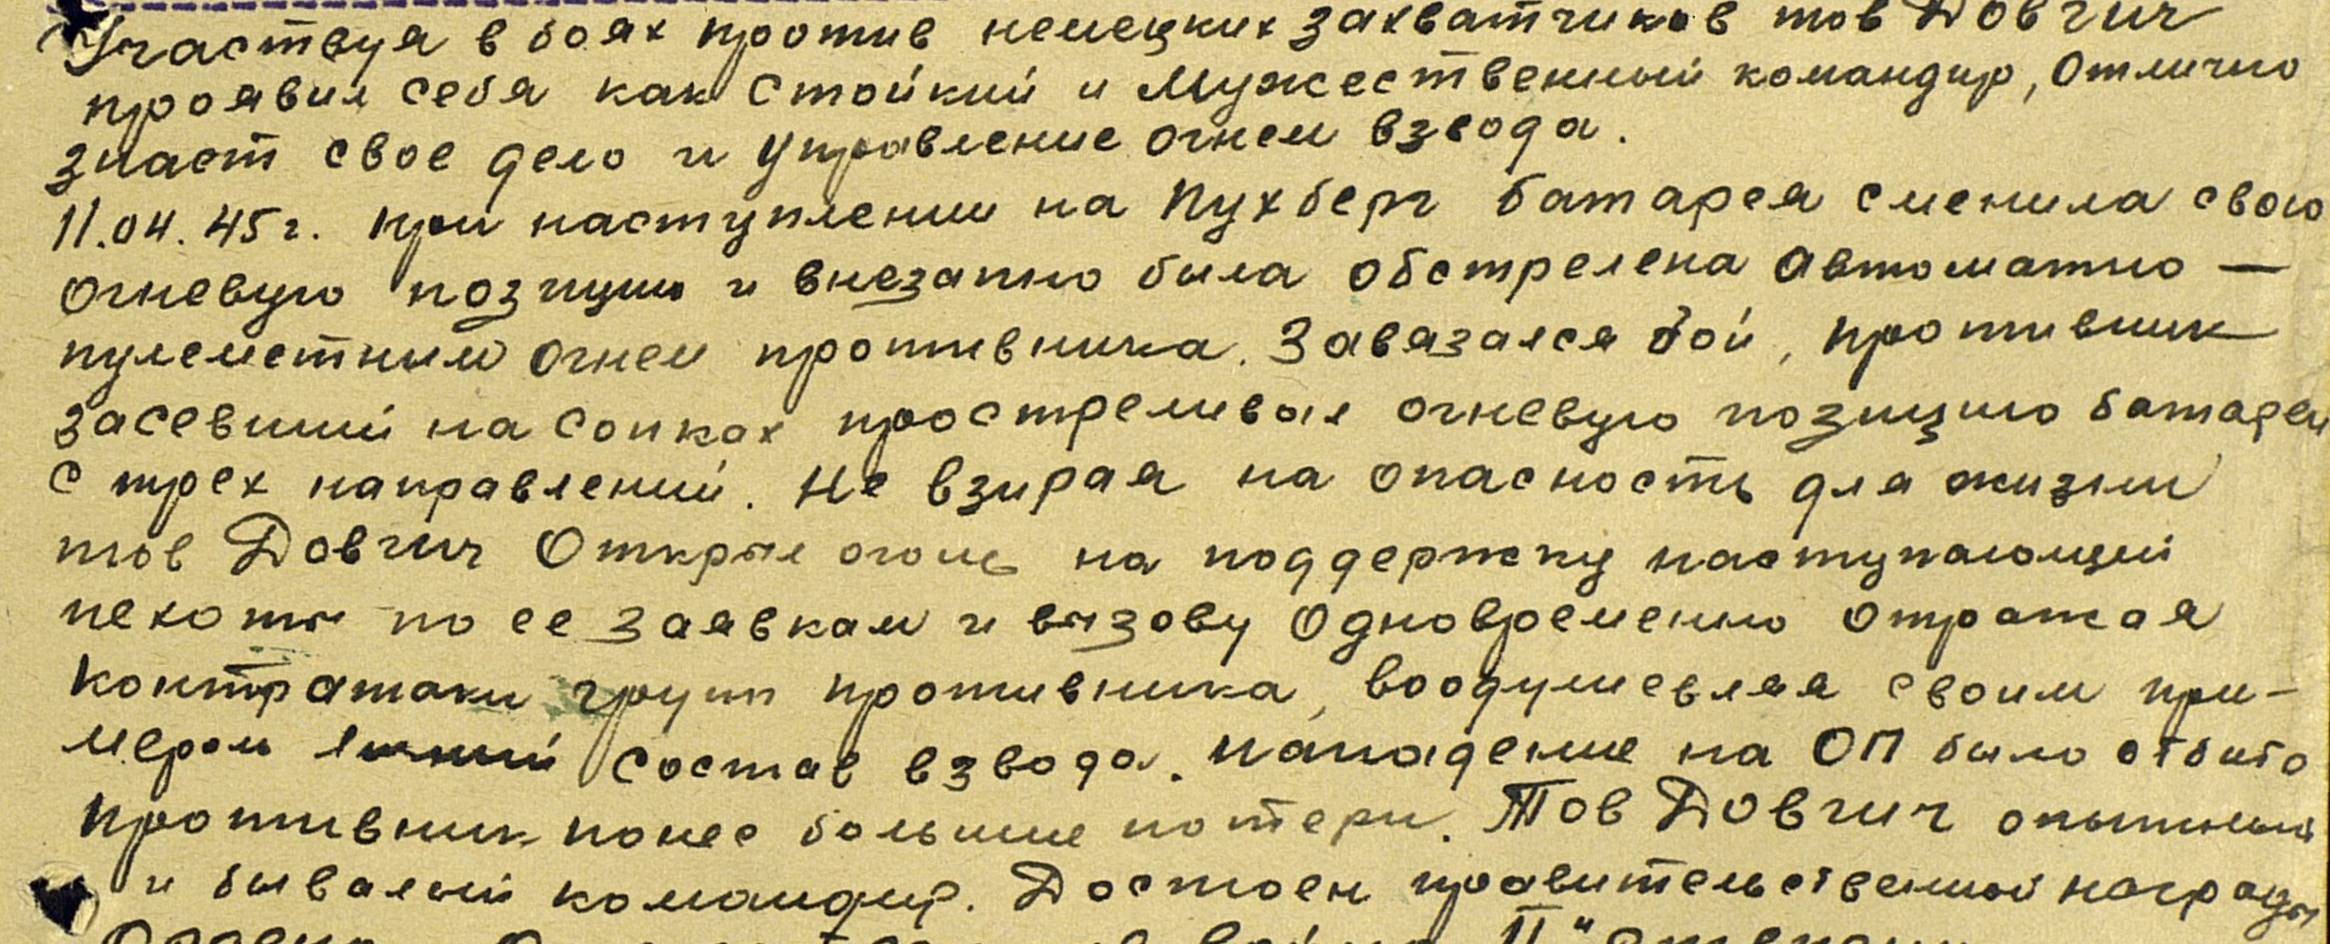 Участвуя в боях против немецких захватчиков тов Довгич
проявил себя как стойкий и мужественный командир, отлично
знает свое дело и управление огнем взвода.
11.04.45г. при наступлении на Пухберг батарея сменила свою
огневую позицию и внезапно была обстрелена автоматно —
пулеметным огнем противника. Завязался бой, противник
засевший на сопках простреливал огневую позицию батареи
с трех направлений. Не взирая на опасность для жизни
тов Довгич Открыл огонь на поддержку наступающей
пехоты по ее заявкам и вызову одновременно отражая
контратаки групп противника, воодушевляя своим при-
мером личный состав взвода. Нападение на ОП было отбито
противник понес большие потери. Тов Довгич опытный
и бывалый командир. Достоен правительственной награды